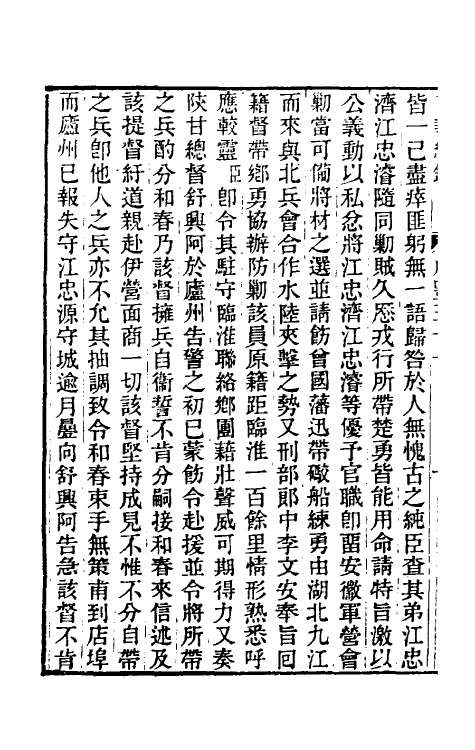 皆一己盡瘁匪躬無一語歸咎於人無愧古之純臣查其弟江忠
濟江忠濬隨同勦賊久歷戎行所帶楚勇皆能用命請特旨激以
公義動以私忿將江忠濟江忠濬等優予官職卽留安徽軍營會
勦當可備將材之選並請飭曾國藩迅帶礮船練勇由湖北九江
而來與北兵會合作水陸夾擊之勢又刑部郞中李文安奉旨囘
籍督帶鄉勇協辦防勦該員原籍距臨淮一百餘里情形熟悉呼
應較靈臣卽令其駐守臨淮聯絡鄉團藉壯聲威可期得力又奏
陝甘總督舒興阿於廬州吿警之初已蒙飭令赴援並令將所帶
之兵酌分和春乃該督擁兵自衞誓不肯分嗣接和春來信述及
該提督紆道親赴伊營面商一切該督堅持成見不惟不分自帶
之兵卽他人之兵亦不允其抽調致令和春束手無策甫到店埠
而廬州已報失守江忠源守城逾月曡向舒興阿告急該督不肯